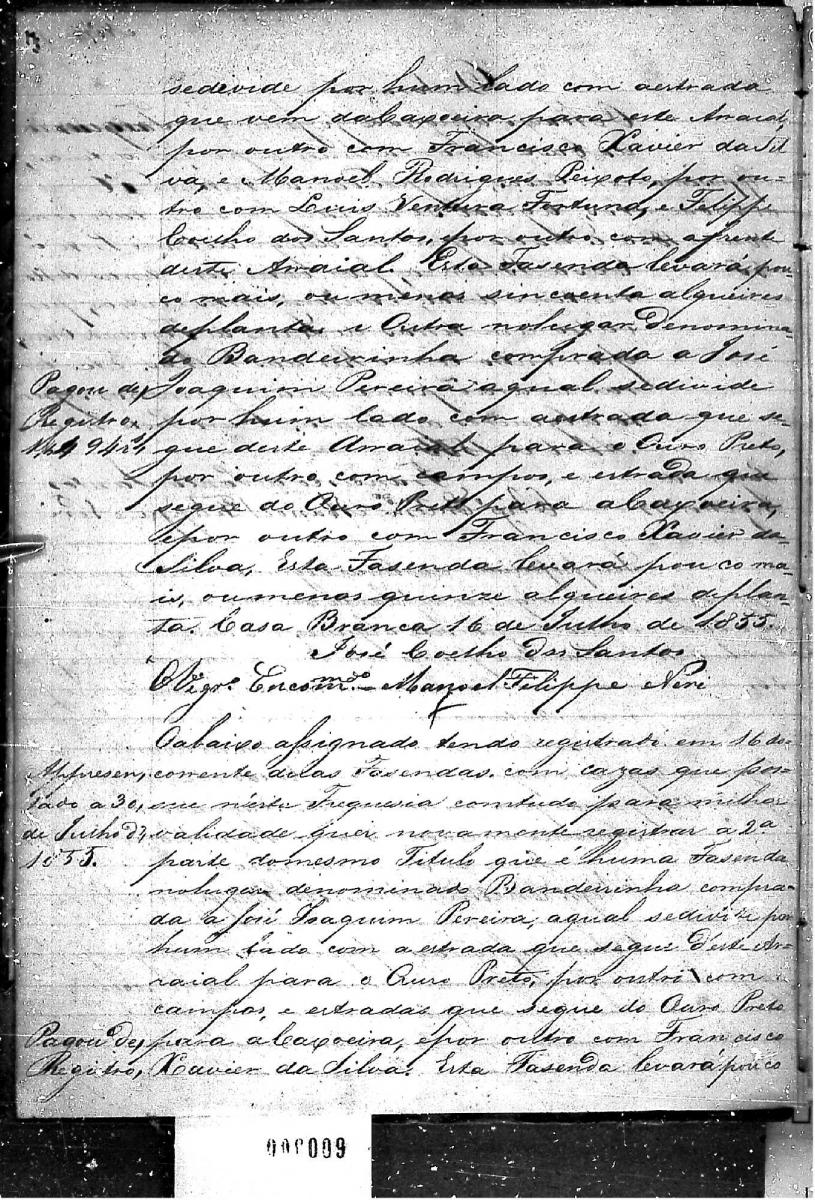 sedevide por hum lado com aestrada
que vem daCaxoeira para este Araial,
por outro com Francisco Xavier da Sil
va, e Manoel Rodrigues Peixoto, por ou-
tro com Luis Ventura Fortuna, e Felippe
Coelho dos Santos, por outro com afrente
deste Arraial. Esta Fasenda levará pou
co mais, ou menos sincoenta alqueires
deplantas e Outra nolugar Denomina-
do Bandeirinha comprada a José
Pagou de
Registro,
Joaquim Pereira aqual sedivide
por hum lado com aestrada que se-
gue deste Arraial para o Ouro Preto,
por outro com campos, e estrada que
segue do Ouro Preto para aCaxoeira,
epor outro com Francisco Xavier da
Silva, Esta Fasenda levará pouco ma-
is, ou menos quenze alqueires deplan-
ta. Casa Branca 16 de Julho de 1855.
José Coelho dos Santos
O Vigrº. Encomdº. Manoel Filippe Neri
Appresen,
tado a 30,
de Julho d',
1855.
Oabaixo assignado tendo registrado em 16 do
corrente duas Fasendas com cazas que pos-
sue néste Freguesia comtudo para milhor
validade quer novamente registrar a 2ª
parte domesmo Titulo que é huma Fasenda
nolugar denominado Bandeirinha compra-
da a José Joaquim Pereira, aqual sedivize por
hum lado com a estrada que segue d'este Ar-
raial para o Ouro Preto, por outro com
campos, e estradas que segue do Ouro Preto
Pagou de,
Registro,
para aCaxoeira, epor outro com Francisco
Xavier da Silva. Esta Fasenda levará pouco
009